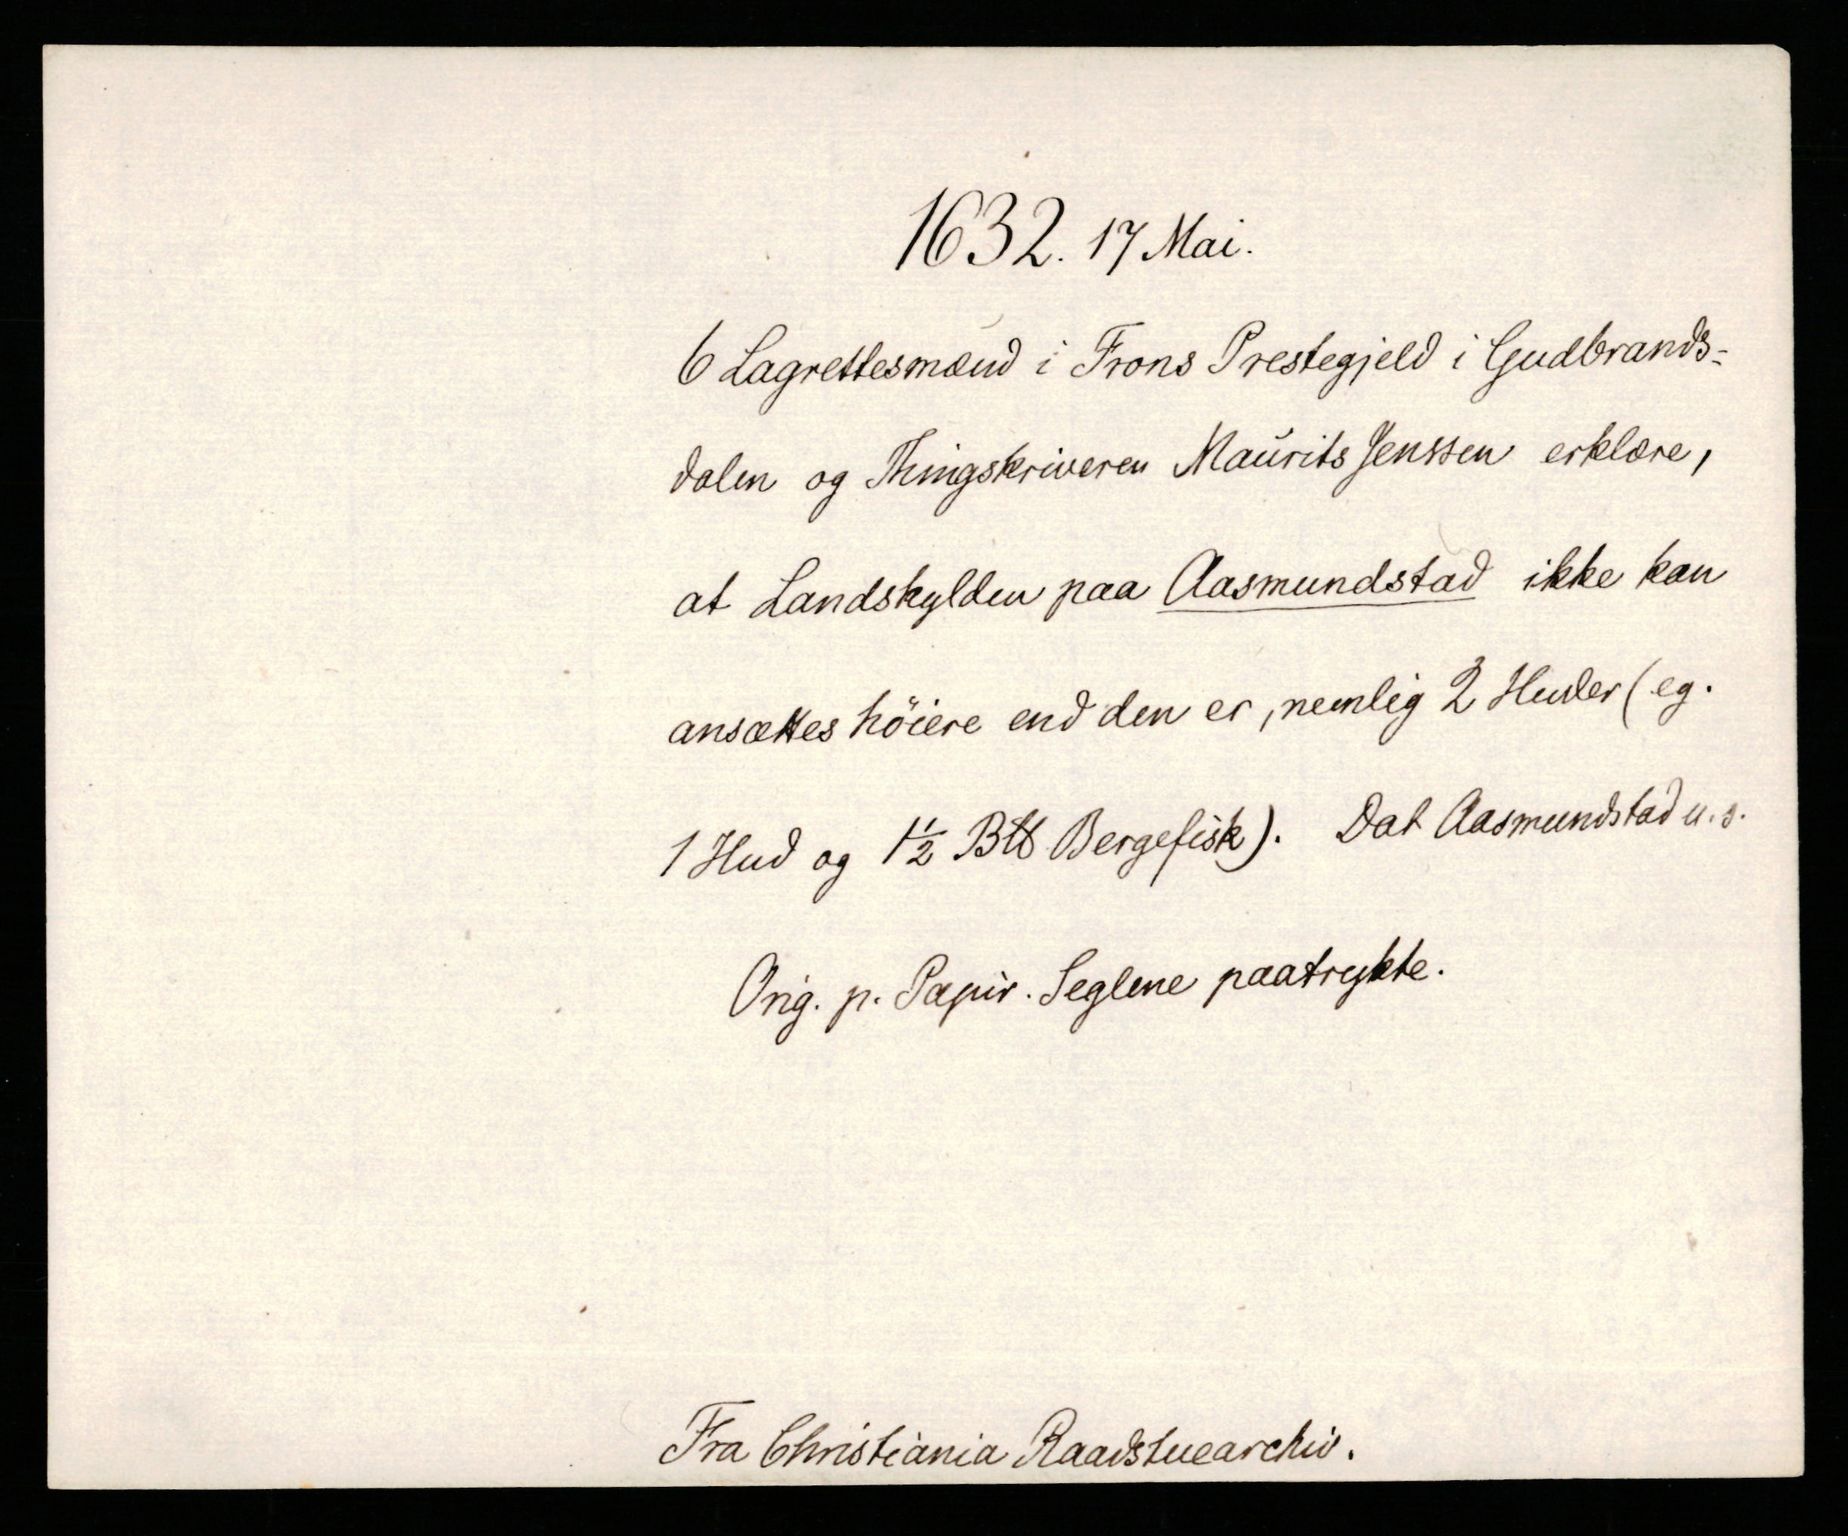 1632. 17 Mai.
6 Lagrettesmænd i Frons Prestegjeld i Gudbrands-
dalen og Thingskriveren Maurits Jenssen erklære,
at Landskylden paa Aasmundstad ikke kan
ansættes höiere end den er, nemlig 2 Huder (eg.
1 Hud og 1½ B℔ Bergefisk). Dat Aasmundstad u. s.
Orig. p. Papir. Seglene paatrykte.
Fra Christiania Raadstuearchiv.